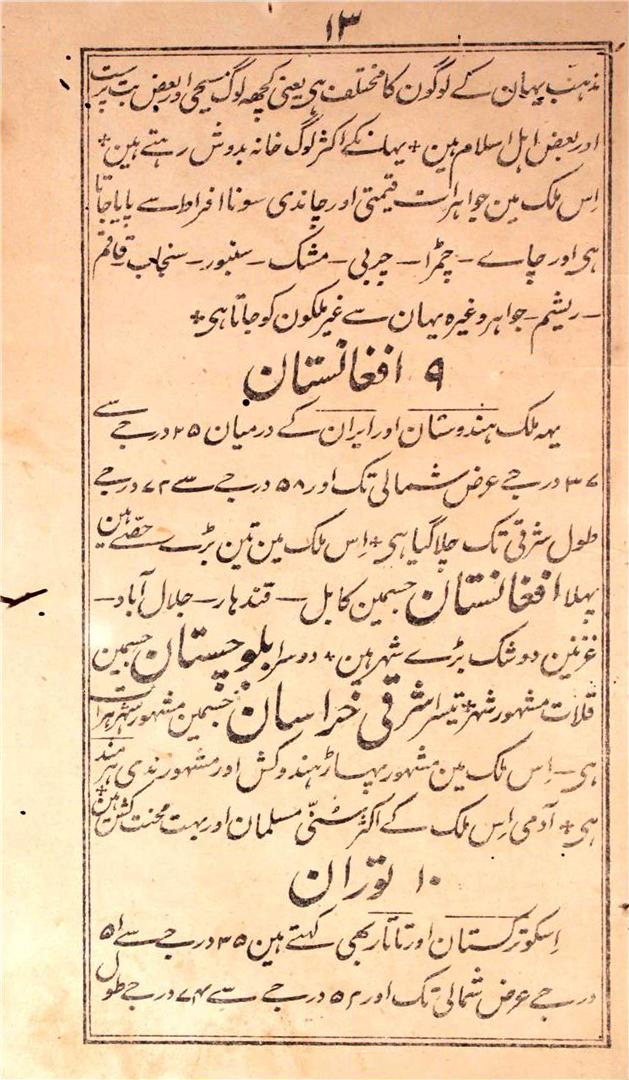 ۱۳
مذہب یہان کے لوگون کا مختلف ہی یعنی کچھ لوگ مسیحی اور بعض بت پرست
اور بعض اہل اسلام ہین + یہانکے اکثر لوگ خانہ بدوش رہتے ہین +
اِس ملک مین جواہرات قیمتی اور چاندی سونا افراط سے پایا جاتا
ہی اور چاے - چمڑا - چربی - مشک - سنبور - سنجاب قاقم
- ریشم - جواہر وغیرہ یہان سے غیر ملکون کو جاتا ہی +
۹ افغانستان
یہہ ملک ہندوستان اور ایران کے درمیان ۲۵ درجے سے
۳۷ درجے عرض شمالی تک اور ۵۸ درجے سے ۷۲ درجے
طول شرقی تک چلا گیا ہی + اِس ملک مین تین بڑے حصّے ہین
پہلا افغانستان جسمین کابل - قندہار - جلال آباد -
غزنین دوشک بڑے شہر ہین + دوسرا بلوچستان جسمین
قلات مشہور شہر + تیسرا شرقی خراسان جسمین مشہور شہر ہرات
ہی - اِس ملک مین مشہور پہاڑ ہندوکش اور مشہور ندی ہرمند
ہی + آدمی اِس ملک کے اکثر سُنّی مسلمان اور بہت محنت کش ہین +
۱۰ توران
اِسکو ترکستان اور تاتار بھی کہتے ہین ۳۵ درجے سے ۵۱
درجے عرض شمالی تک اور ۵۲ درجے سے ۷۴ درجے طول